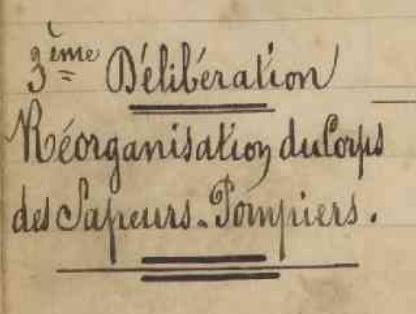 3ème Délibération
Réorganisation du Corps
des Sapeurs-Pompiers.